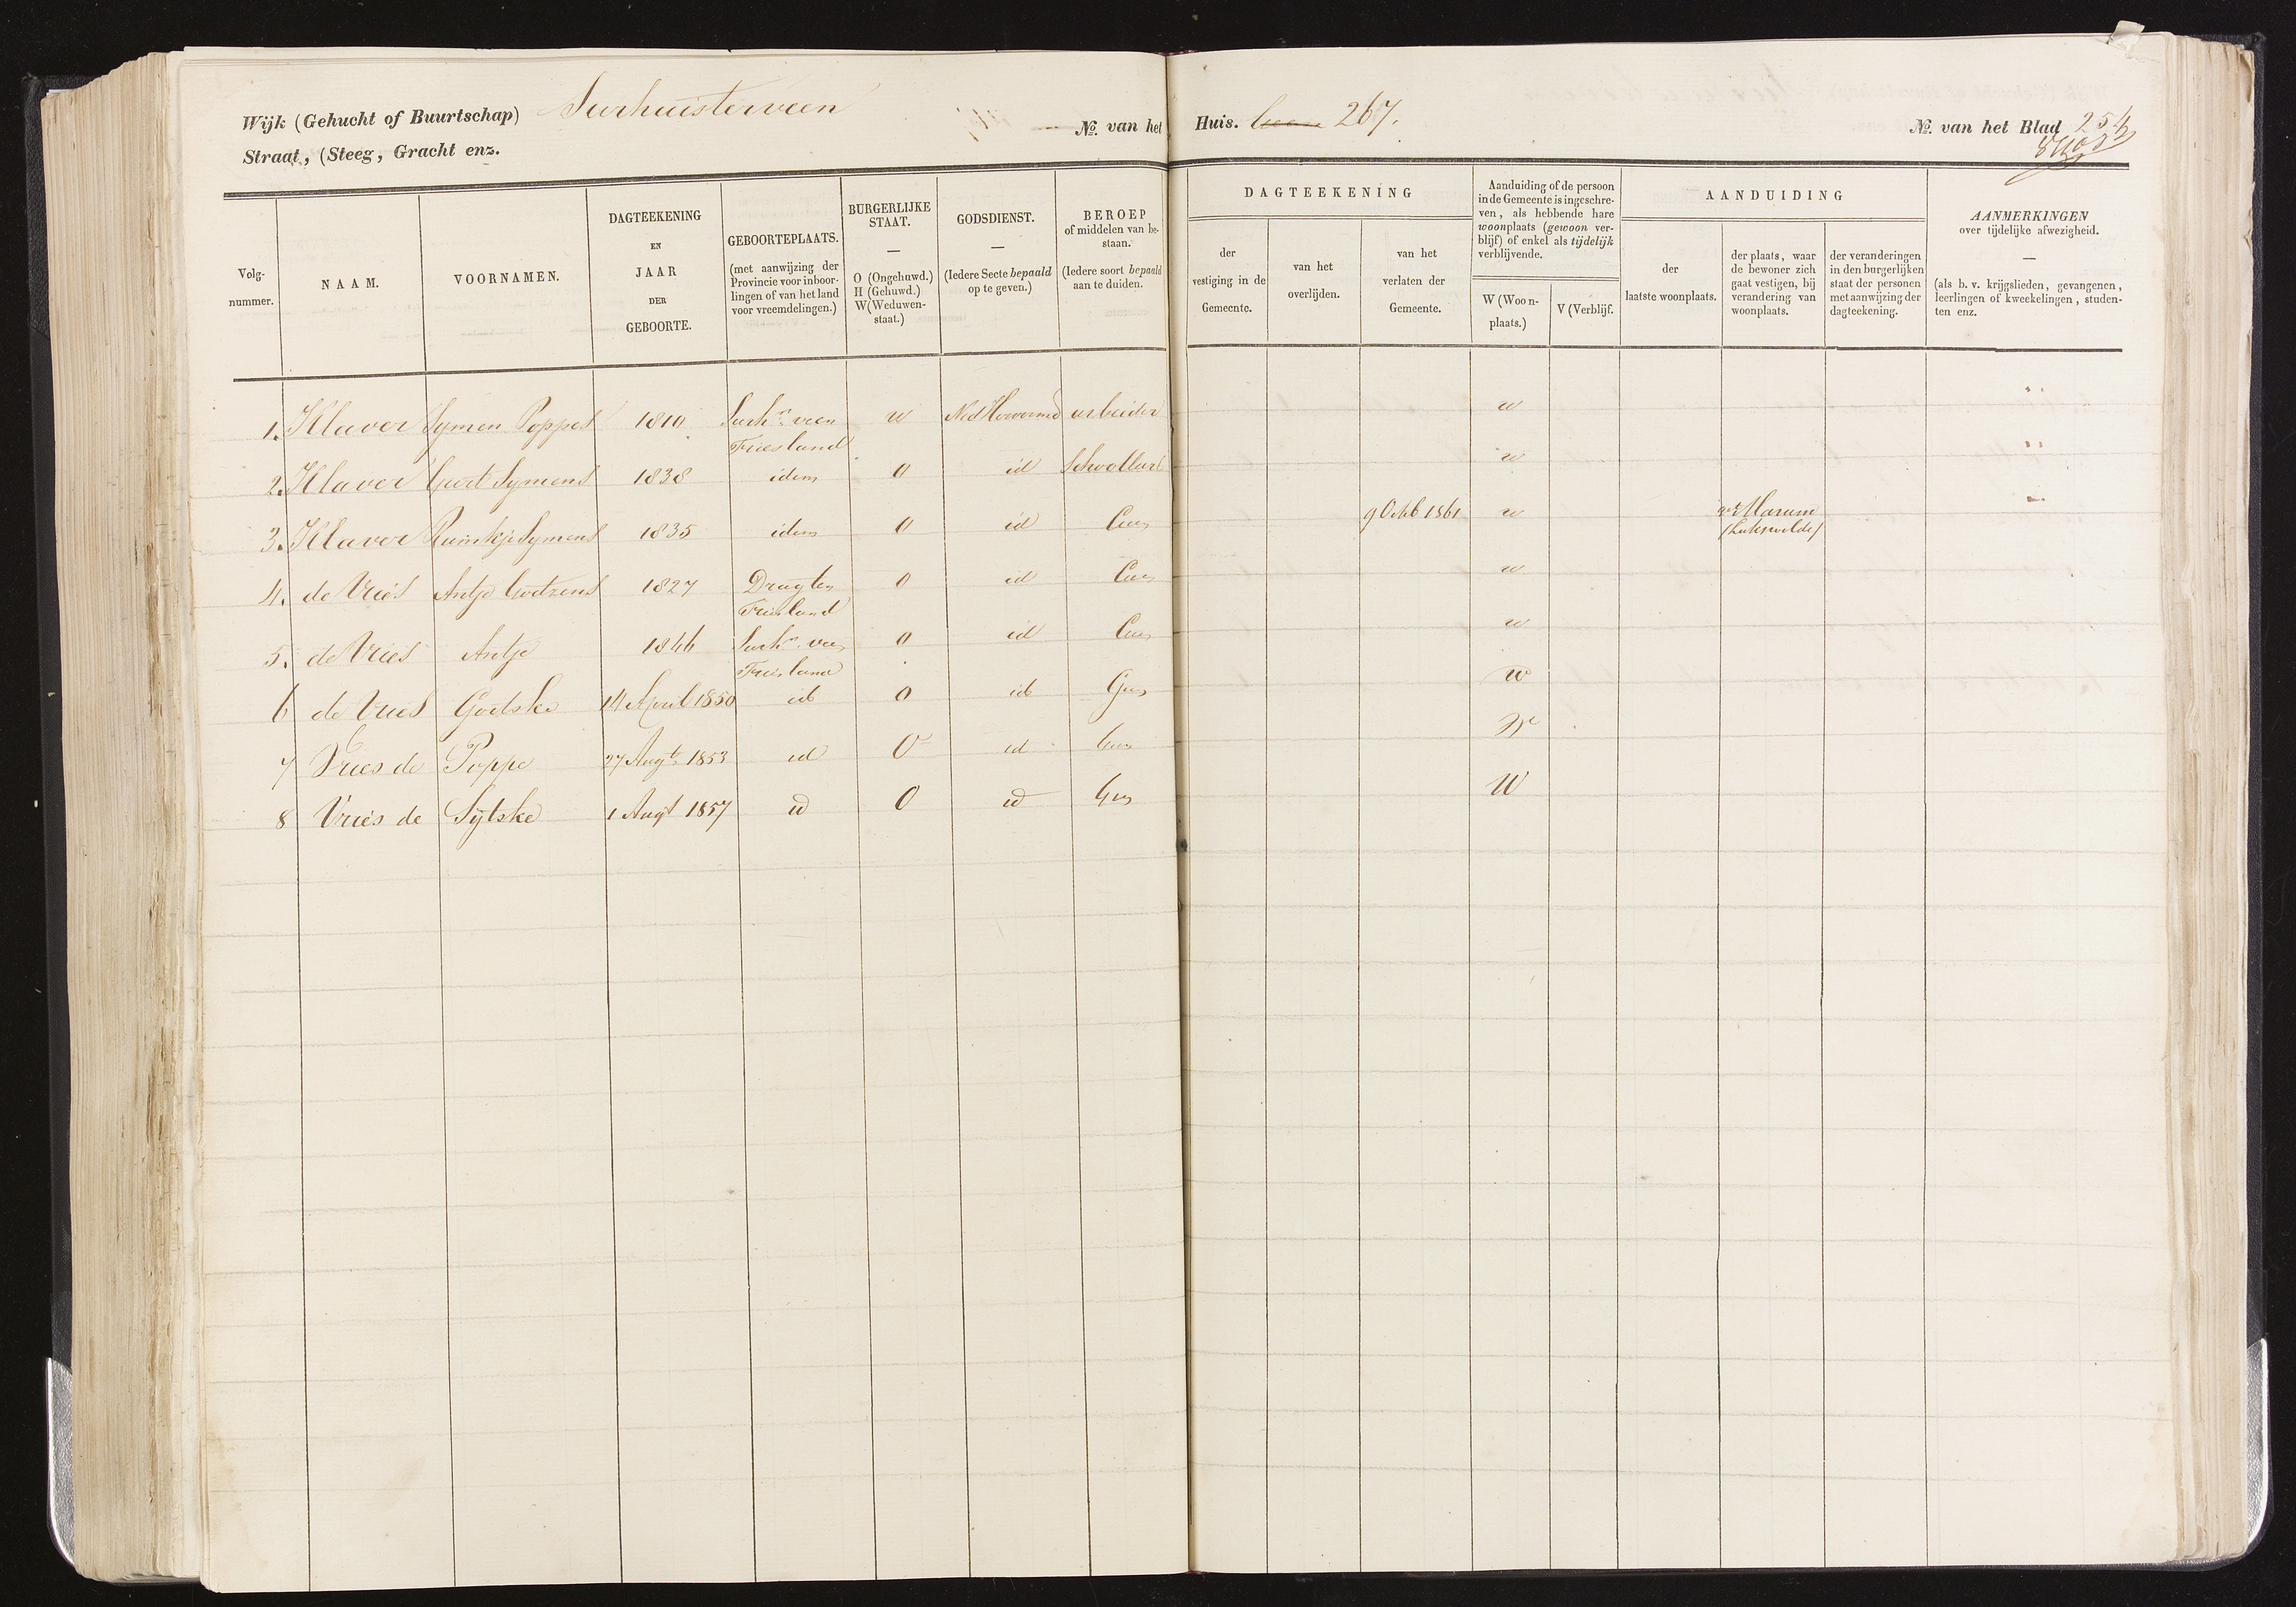 Wijk (Gehucht of Buurtschap) Surhuisterveen
Straat, (Steeg, Gracht enz.
No. van het Huis. 267.
No. van het Blad 254
Volg-
nummer.
NAAM.
VOORNAMEN.
DAGTEEKENING
EN
JAAR
DER
GEBOORTE.
GEBOORTEPLAATS.
(met aanwijzing der
Provincie voor inboor-
lingen of van het land
voor vreemdelingen.)
BURGERLIJKE
STAAT.
O (Ongehuwd.)
H (Gehuwd.)
W (Weduwen-
staat.)
GODSDIENST.
(Iedere Secte bepaald
op te geven.)
BEROEP
of middelen van be-
staan.
(Iedere soort bepaald
aan te duiden.
DAGTEEKENING
der
vestiging in de
Gemeente.
van het
overlijden.
van het
verlaten der
Gemeente.
Aanduiding of de persoon
in de Gemeente is ingeschre-
ven, als hebbende hare
woonplaats (gewoon ver-
blijf) of enkel als tijdelijk
verblijvende.
W (Woon-
plaats.)
V (Verblijf.
AANDUIDING
der
laatste woonplaats.
der plaats, waar
de bewoner zich
gaat vestigen, bij
verandering van
woonplaats.
der veranderingen
in den burgerlijken
staat der personen
met aanwijzing der
dagteekening.
AANMERKINGEN
over tijdelijke afwezigheid.
(als b. v. krijgslieden, gevangenen,
leerlingen of kweekelingen, studen-
ten enz.
1. Klaver Symen Poppes 1810 Surhr veen w Ned Hervormd arbeider w
Friesland
2. Klaver Geert Symens 1838 idem O id w
3. Klaver Symens 1835 idem O id Geen 9 Octb 1861 w Marum
4. de Vries Antje Goitzens 1827 Dragten O id Geen w
Friesland
5. de Vries Antje 1846 Surhr veen O id Geen w
Friesland
6 de Vries Goitske 14 April 1850 id O id Geen w
7 Vries de Poppe 27 Augt 1853 id O id Geen W
8 Vries de Sijtske 1 Augt 1857 id O id Geen W